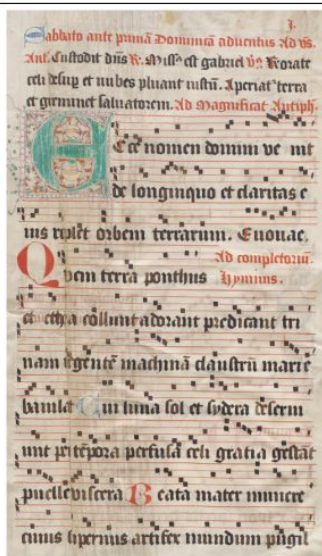 j.
Sabbato ante primā Dominicā aduentus Ad v̄s.
Ant. Custodit dn̄s R. Miss⁹ est gabriel v̄. Rorate
celi desup et nubes pluant iustū. Aperiat terra
et giminet saluatorem. Ad Magnificat Antiph.
Ecce nomen domini ve nit
de longinquo et claritas e
ius replet orbem terrarum. Euouae.
Ad completoriū.
Quem terra ponthus Hymnus.
et ethra collunt adorant predicant tri
nam regentē machinā claustrū marie
baiulat Cui luna sol et sydera deserui
unt per tēpora perfusā celi gratia gestāt
puelle viscera Beata mater munere
cuius supernus artifex mundum pugil